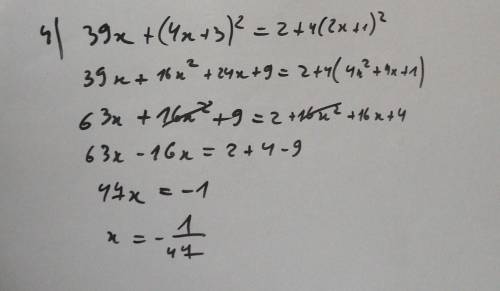 4) 39x + (4x+3)² = 2+4(2x+1)²
39x + 16x² + 24x + 9 = 2+4(4x²+4x+1)
63x + 16x² + 9 = 2 + 16x² + 16x + 4
63x - 16x = 2 + 4 - 9
47x = -1
x = - 1/47